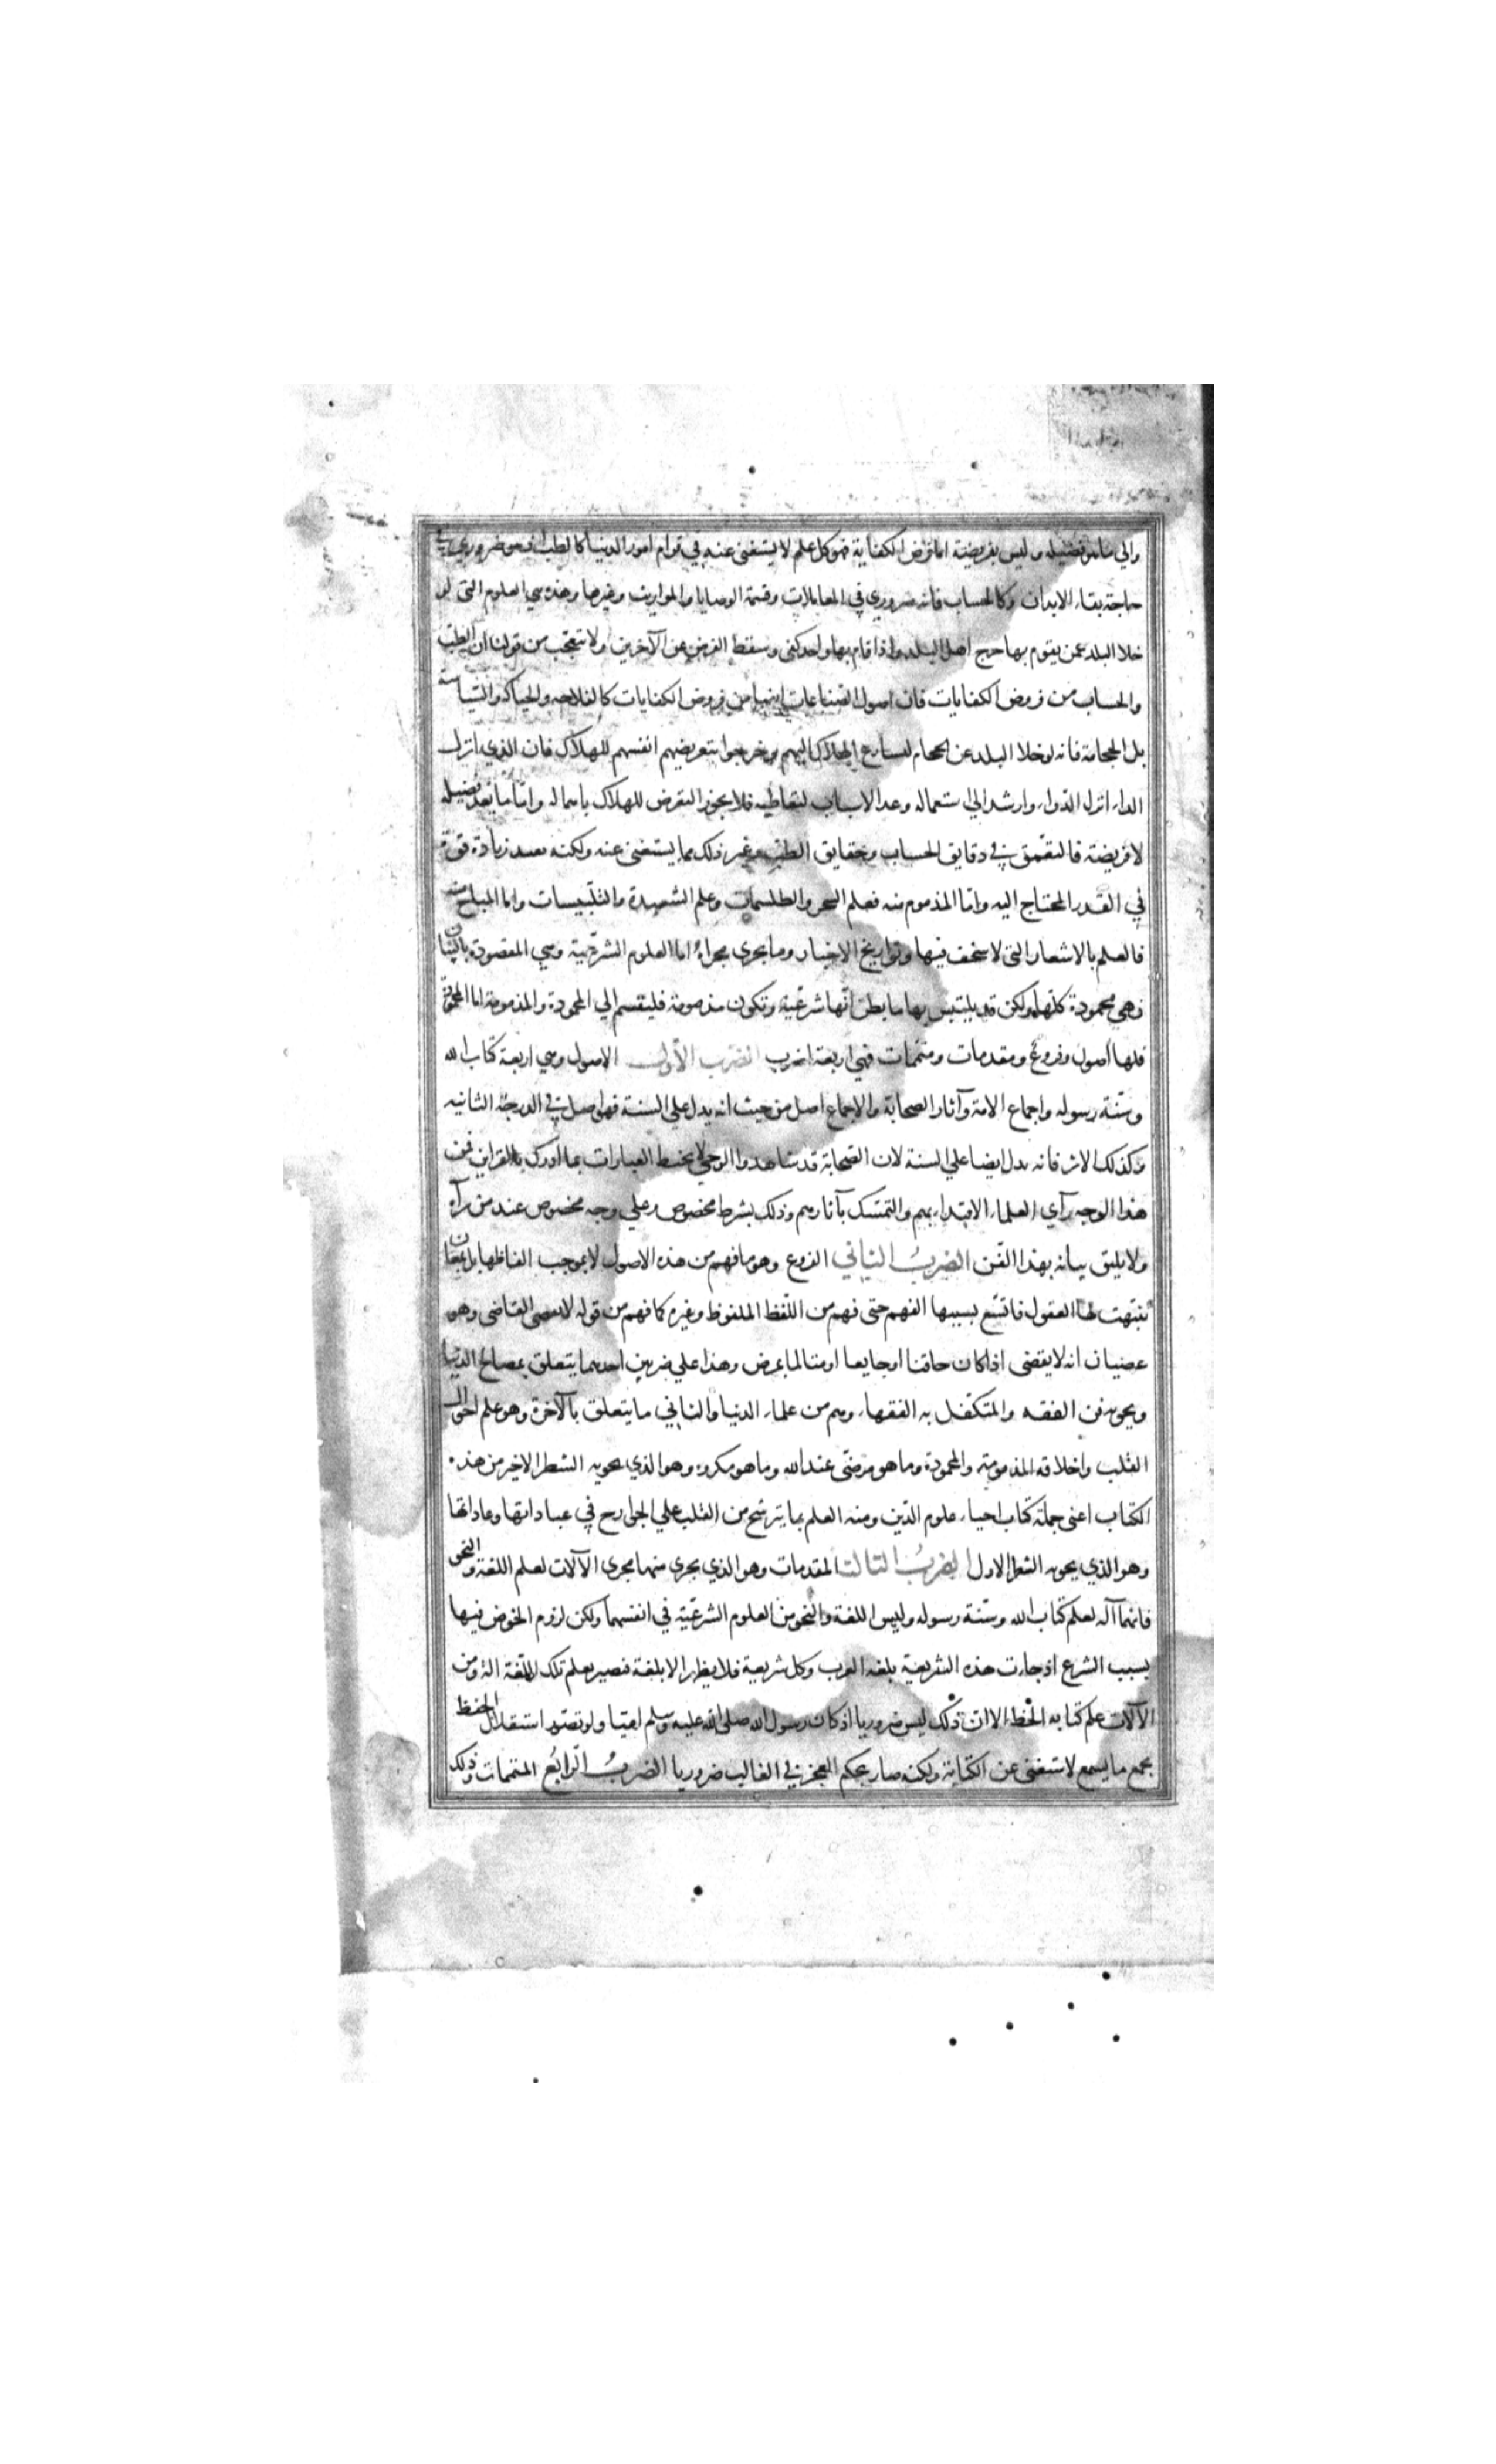 والي ما هو فضيله وليس بفريضة اما فرض الكفاية فهو كل علم لا يستغني عنه في قوام امور الدنيا كالطب اذ هو ضروري في
حاجة بقاء الابدان وكالحساب فانه ضروري في المعاملات وقسمة الوصايا والمواريث وغيرها وهذه هي العلوم التي لو
خلا البلد عمن يقوم بها حرج اهل البلد واذا قام بها واحد كفى وسقط الفرض عن الآخرين ولا تتعجب من قولنا ان الطب
والحساب من فروض الكفايات فان اصول الصناعات ايضا من فروض الكفايات كالفلاحه والحياكه والسياسة
بل الحجامة فانه لو خلا البلد عن الحجام لسارع الهلاك اليهم وخرجوا بتعريضهم انفسهم للهلاك فان الذي انزل
الداء انزل الدواء وارشد الي استعماله وعد الاسباب لتعاطيه فلا يجوز التعرض للهلاك باهماله واما ما يعد فضيله
لا فريضة فالتعمق في دقايق الحساب وحقايق الطب وغير ذلك مما يستغنى عنه ولكنه يفيد زيادة قوة
في القدر المحتاج اليه واما المذموم منه فعلم السحر والطلسمات وعلم الشعبدة والتلبيسات واما المباح منه
فالعلم بالاشعار التي لا سخف فيها وتواريخ الاخبار وما يجري مجراه اما العلوم الشرعية وهي المقصودة بالبيان
فهي محمودة كلها ولكن قد يلتبس بها ما يظن انها شرعية وتكون مذمومة فلينقسم الي المحمودة والمذمومة اما المحمودة
فلها اصول وفروع ومقدمات ومتممات فهي اربعة اضرب الضرب الأول الاصول وهي اربعة كتاب الله
وسنة رسوله واجماع الامة وآثار الصحابة والاجماع اصل من حيث انه يدل علي السنة فهو اصل في الدرجة الثانيه
وكذلك الاثر فانه يدل ايضا علي السنة لان الصحابة قد شاهدوا الوحي لا يحيط العبارات بما ادرك بالقراين فمن
هذا الوجه رآي العلماء الاقتداء بهم والتمسك بآثارهم وذلك بشرط مخصوص وعلي وجه مخصوص عند من رآه
ولا يليق بيانه بهذا الفن الضرب الثاني الفروع وهو ما فهم من هذه الاصول لا بموجب الفاظها بل بمعان
تنبهت لها العقول فاتسع بسببها الفهم حتى فهم من اللفظ الملفوظ وغيره كما فهم من قوله لا يقضي القاضي وهو
غضبان انه لا يقضي اذا كان حاقنا او جايعا او متالما بمرض وهذا علي ضربين احدهما يتعلق بمصالح الدنيا
ويحويه فن الفقه والمتكفل به الفقهاء وهم من علماء الدنيا والثاني ما يتعلق بالآخرة وهو علم احوال
القلب واخلاقه المذمومة والمحمودة وما هو مرضي عند الله وما هو مكروه وهو الذي يحويه الشطر الاخير من هذه
الكتاب اعني جملة كتاب احياء علوم الدين ومنه العلم بما يترشح من القلب علي الجوارح في عباداتها وعاداتها
وهو الذي يحويه الشطر الاول الضرب الثالث المقدمات وهو الذي يجري منها مجرى الآلات لعلم اللغة والنحو
فانهما آله لعلم كتاب الله وسنة رسوله وليس اللغة والنحو من العلوم الشرعية في انفسهما ولكن لزم الخوض فيها
بسبب الشرع اذ جاءت هذه الشريعة بلغة العرب وكل شريعة فلا يظهر الا بلغة فيصير يعلم تلك اللغة الة ومن
الآلات علم كتابه الخط الا ان ذلك ليس ضروريا اذ كان رسول الله صلى الله عليه وسلم اميا ولو تصور استقلال الحفظ
بجمع ما يسمع لاستغنى عن الكتابة ولكنه صار بحكم العجز في الغالب ضروريا الضرب الرابع المتممات وذلك